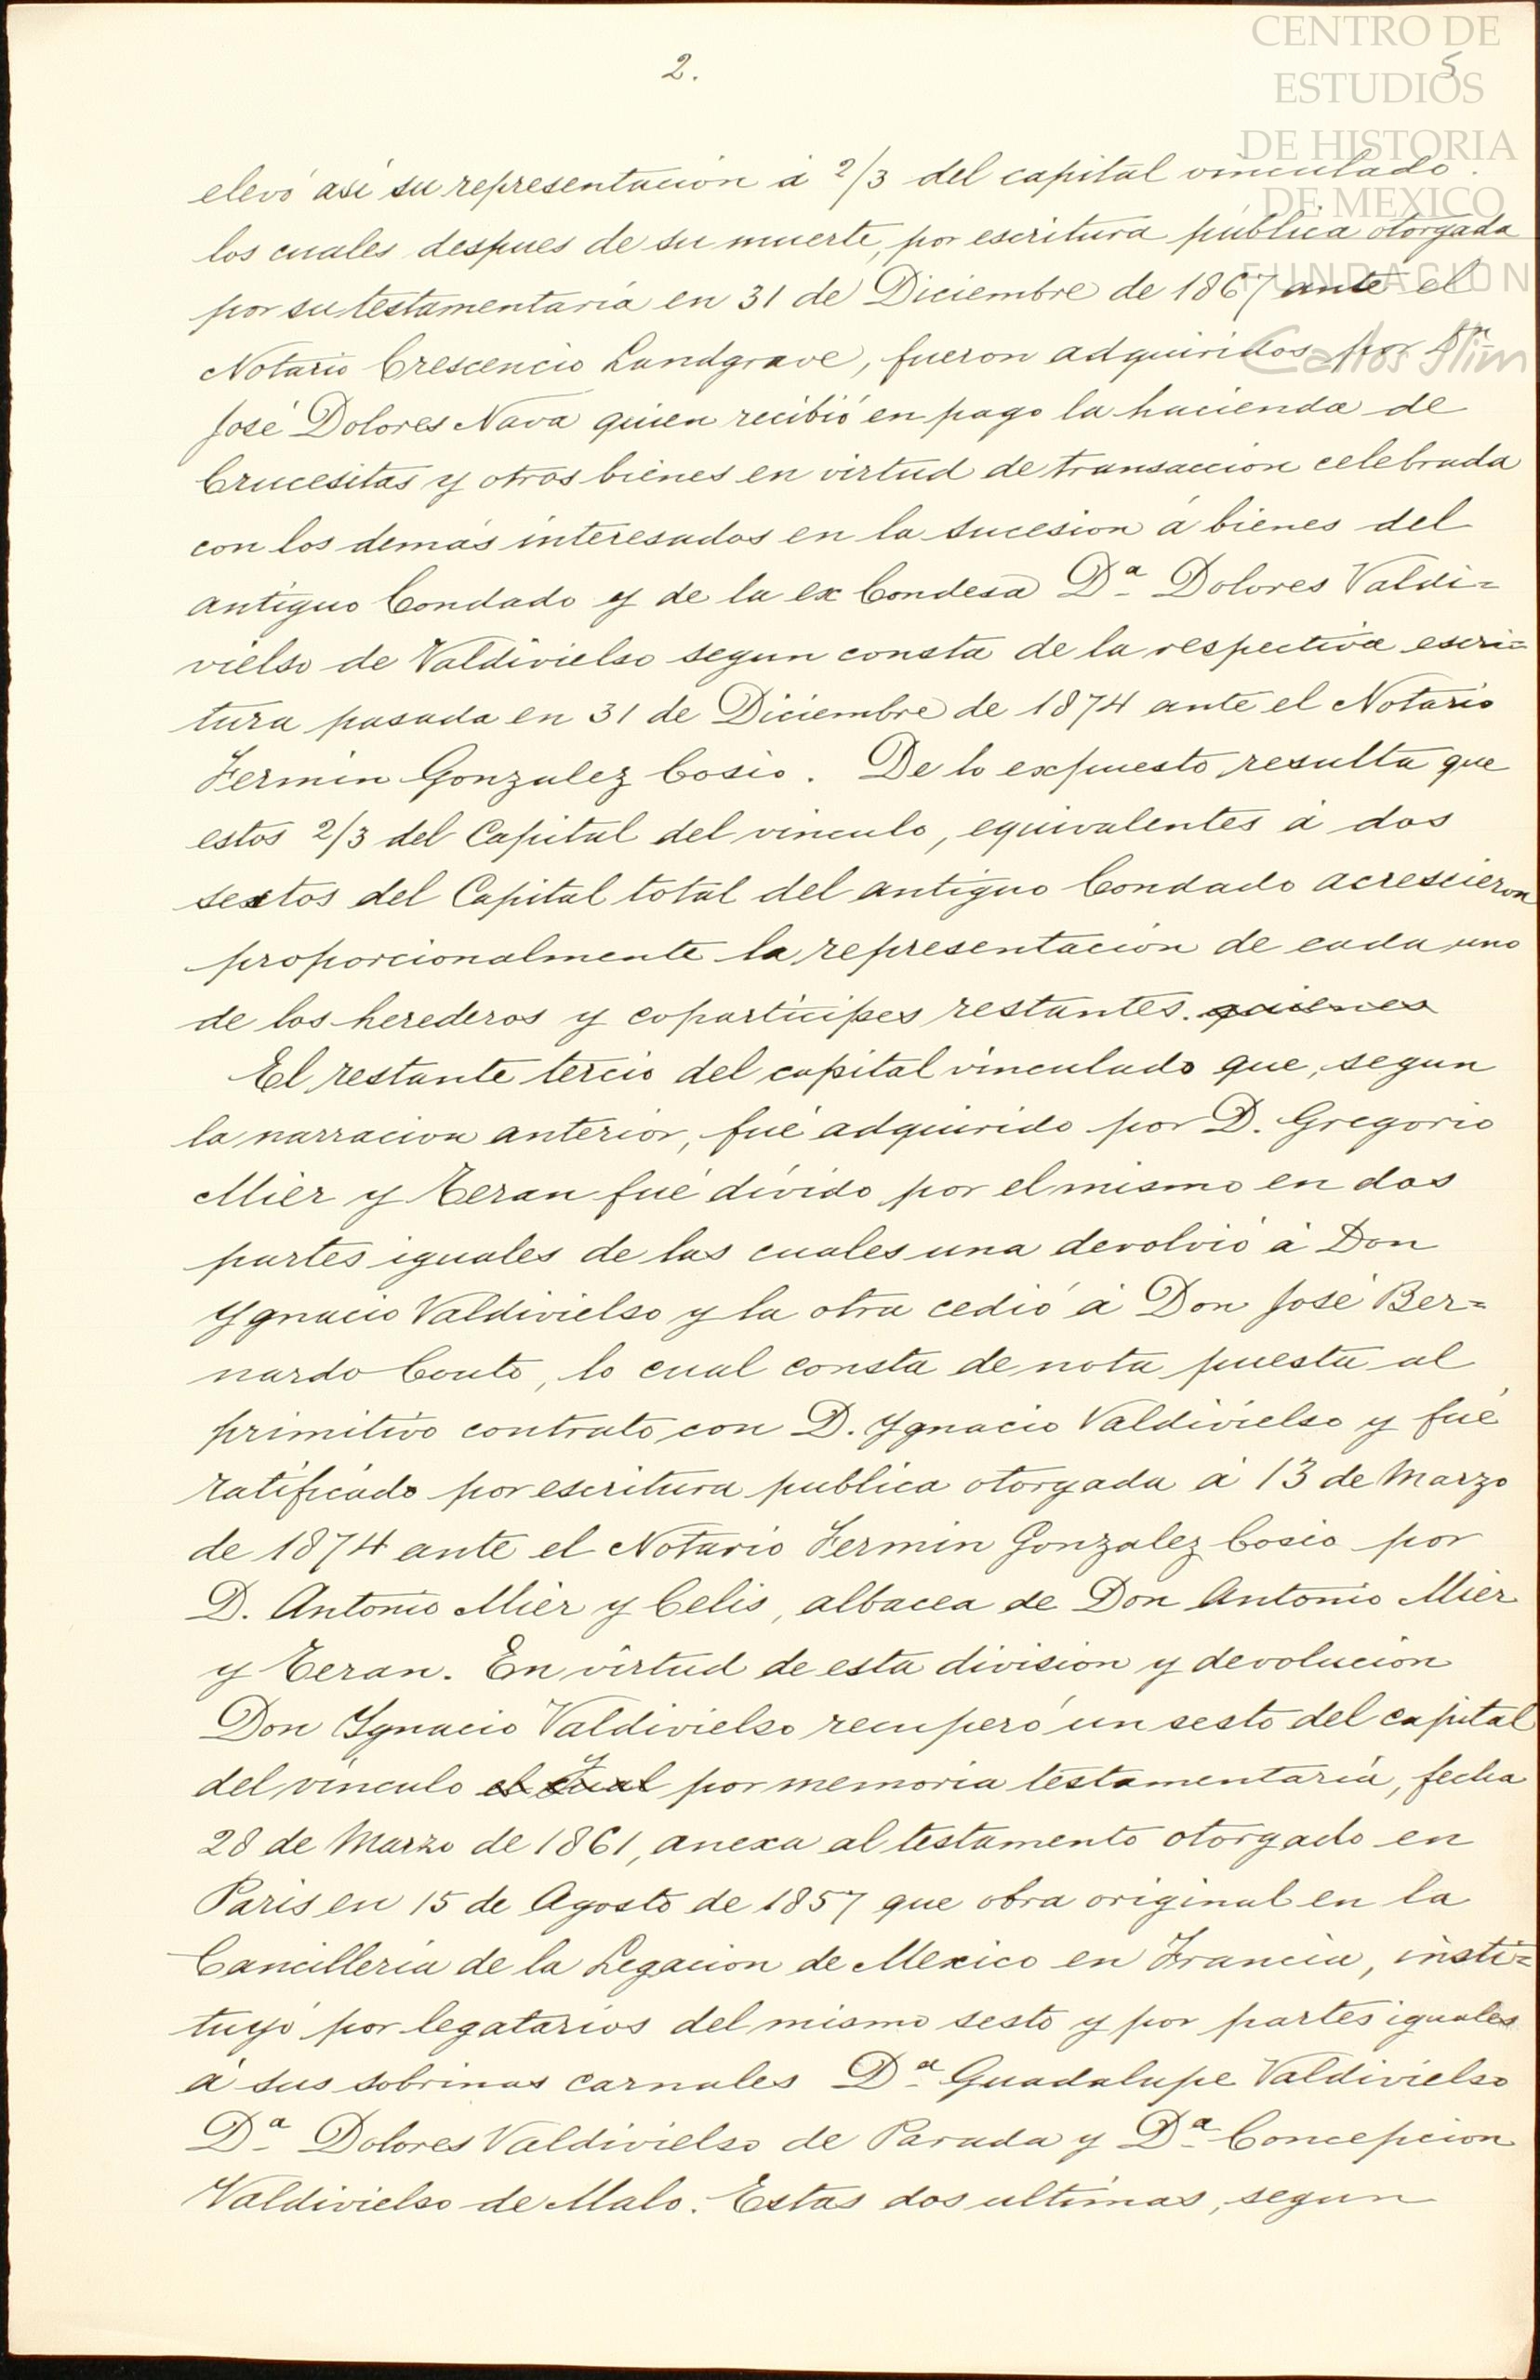 CENTRO DE
ESTUDIOS
DE HISTORIA
DE MEXICO
FUNDACIÓN
Carlos Slim
2.
5
elevó asi su representacion á 2/3 del capital vinculado.
los cuales despues de su muerte, por escritura pública otorgada
por su testamentaria en 31 de Diciembre de 1867 ante el
Notario Crescencio Landgrave, fueron adquiridos por Dn
José Dolores Nava quien recibió en pago la hacienda de
Crucesitas y otros bienes en virtud de transaccion celebrada
con los demás interesados en la sucesion á bienes del
antiguo Condado y de la ex Condesa Da Dolores Valdi=
vielso de Valdivielso segun consta de la respectiva escri=
tura pasada en 31 de Diciembre de 1874 ante el Notario
Fermin Gonzalez Cosio. De lo expuesto resulta que
estos 2/3 del Capital del vinculo, equivalentes á dos
sextos del Capital total del antiguo Condado acrescieron
proporcionalmente la representacion de cada uno
de los herederos y coparticipes restantes. quienes
El restante tercio del capital vinculado que, segun
la narracion anterior, fué adquirido por D. Gregorio
Mier y Teran fué divido por el mismo en dos
partes iguales de las cuales una devolvió á Don
Ygnacio Valdivielso y la otra cedió á Don José Ber=
nardo Couto, lo cual consta de nota puesta al
primitivo contrato con D. Ygnacio Valdivielso y fué
ratificado por escritura publica otorgada á 13 de Marzo
de 1874 ante el Notario Fermin Gonzalez Cosio por
D. Antonio Mier y Celis, albacea de Don Antonio Mier
y Teran. En virtud de esta division y devolucion
Don Ygnacio Valdivielso recuperó un sesto del capital
del vinculo el cual y por memoria testamentaria, fecha
28 de Marzo de 1861, anexa al testamento otorgado en
Paris en 15 de Agosto de 1857 que obra original en la
Cancilleria de la Legacion de Mexico en Francia, insti=
tuyó por legatarios del mismo sesto y por partes iguales
á sus sobrinas carnales Da Guadalupe Valdivielso
Da Dolores Valdivielso de Parada y Da Concepcion
Valdivielso de Malo. Estas dos ultimas, segun